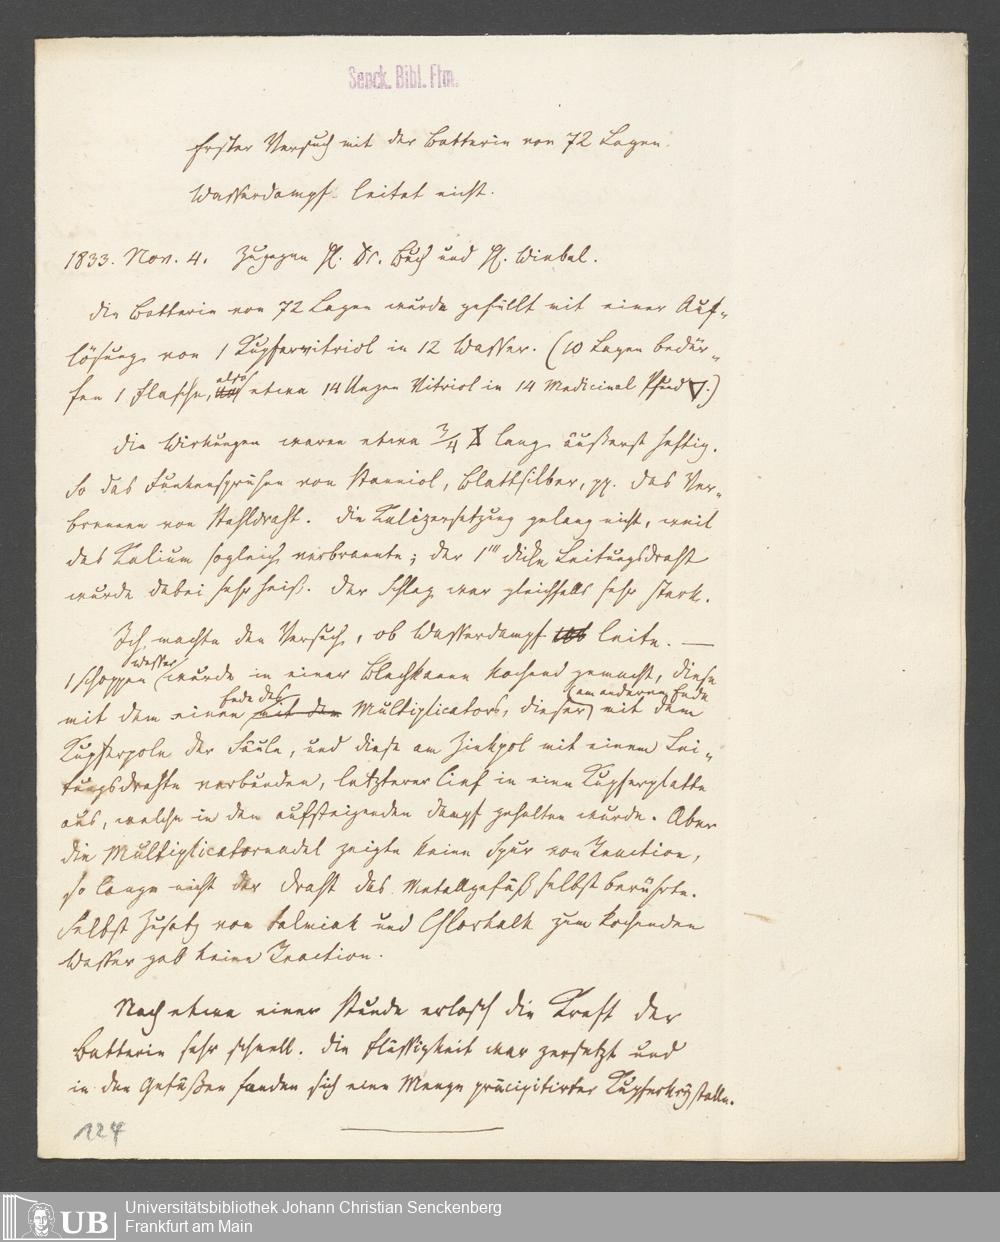 Senck. Bibl. Ffm.
Erster Versuch mit der Batterie von 72 Lagen.
Wasserdampf leitet nicht.
1833. Nov. 4. Zugegen H. Dr. Buch und H. Wiebel.
Die Batterie von 72 Lagen wurde gefüllt mit einer Auf-
lösung von 1 Kupfervitriol in 12 Wasser. (10 Lagen bedür-
fen 1 Flasche, also etwa 14 Unzen Vitriol in 14 Medicinal Pfund 🜄.)
Die Wirkungen waren etwa 3/4 lang äußerst heftig.
So das Funkensprühen von Stanniol, Blattsilber, pp. das Ver-
brennen von Stahldraht. Die Kalizersetzung gelang nicht, weil
das Kalium sogleich verbrannte; der 1''' dicke Leitungsdraht
wurde dabei sehr heiß. Der Schlag war gleichfalls sehr stark.
Ich machte den Versuch, ob Wasserdampf leite. —
1 Schoppen Wasser wurde in einer Blechkanne kochend gemacht, diese
mit dem einen Ende des Multiplicators, dieser am anderen Ende mit dem
Kupferpole der Säule, und diese am Zinkpol mit einem Lei-
tungsdrahte verbunden, letzterer lief in eine Kupferplatte
aus, welche in den aufsteigenden Dampf gehalten wurde. Aber
die Multiplicatornadel zeigte keine Spur von Reaction,
so lange nicht der Draht das Metallgefäß selbst berührte.
Selbst Zusatz von Salmiak und Chlorkalk zum kochenden
Wasser gab keine Reaction.
Nach etwa einer Stunde erlosch die Kraft der
Batterie sehr schnell. Die Flüssigkeit war zersetzt und
in den Gefäßen fanden sich eine Menge präcipitirter Kupferkrystalle.
124
UB
Universitätsbibliothek Johann Christian Senckenberg
Frankfurt am Main